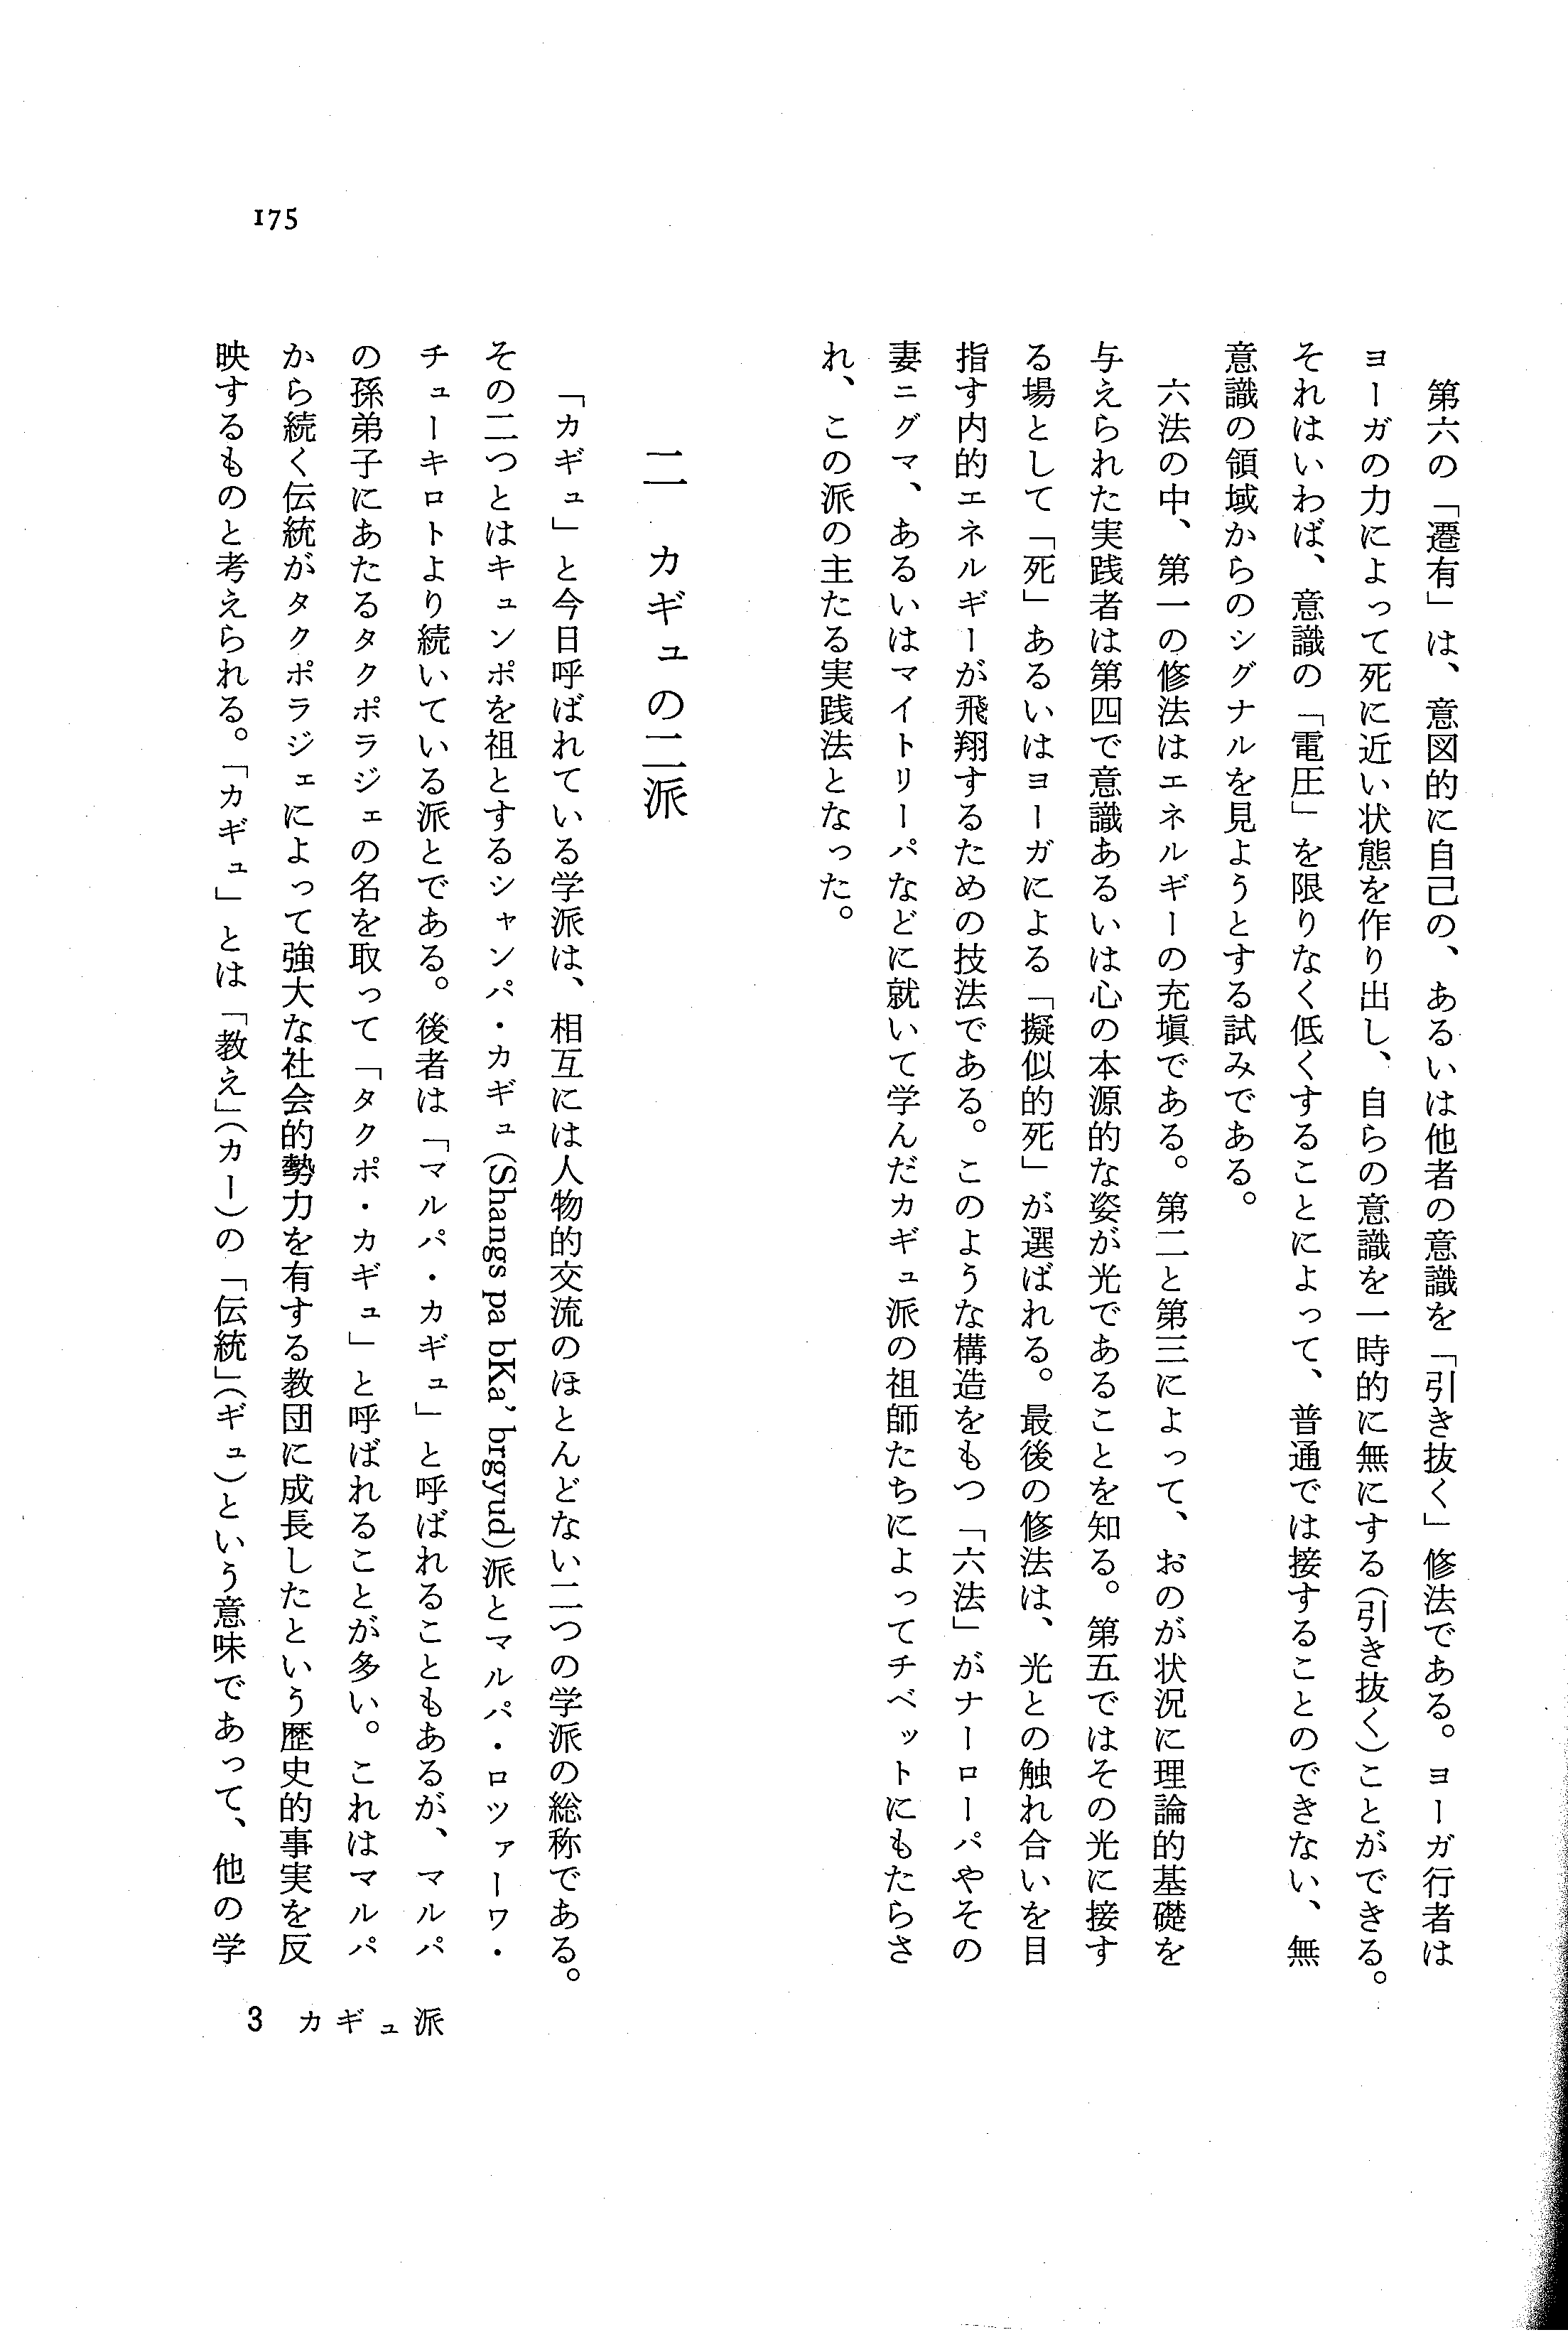 175
第六の「遷有」は、意図的に自己の、あるいは他者の意識を「引き抜く」修法である。ヨーガ行者は
ヨーガの力によって死に近い状態を作り出し、自らの意識を一時的に無にする(引き抜く)ことができる。
それはいわば、意識の「電圧」を限りなく低くすることによって、普通では接することのできない、無
意識の領域からのシグナルを見ようとする試みである。
六法の中、第一の修法はエネルギーの充塡である。第二と第三によって、おのが状況に理論的基礎を
与えられた実践者は第四で意識あるいは心の本源的な姿が光であることを知る。第五ではその光に接す
る場として「死」あるいはヨーガによる「擬似的死」が選ばれる。最後の修法は、光との触れ合いを目
指す内的エネルギーが飛翔するための技法である。このような構造をもつ「六法」がナーローパやその
妻ニグマ、あるいはマイトリーパなどに就いて学んだカギュ派の祖師たちによってチベットにもたらさ
れ、この派の主たる実践法となった。
二 カギュの二派
「カギュ」と今日呼ばれている学派は、相互には人物的交流のほとんどない二つの学派の総称である。
その二つとはキュンポを祖とするシャンパ・カギュ(Shangs pa bKa' brgyud)派とマルパ・ロツァーワ・
チューキロトより続いている派とである。後者は「マルパ・カギュ」と呼ばれることもあるが、マルパ
の孫弟子にあたるタクポラジェの名を取って「タクポ・カギュ」と呼ばれることが多い。これはマルパ
から続く伝統がタクポラジェによって強大な社会的勢力を有する教団に成長したという歴史的事実を反
映するものと考えられる。「カギュ」とは「教え」(カー)の「伝統」(ギュ)という意味であって、他の学
3 カギュ派